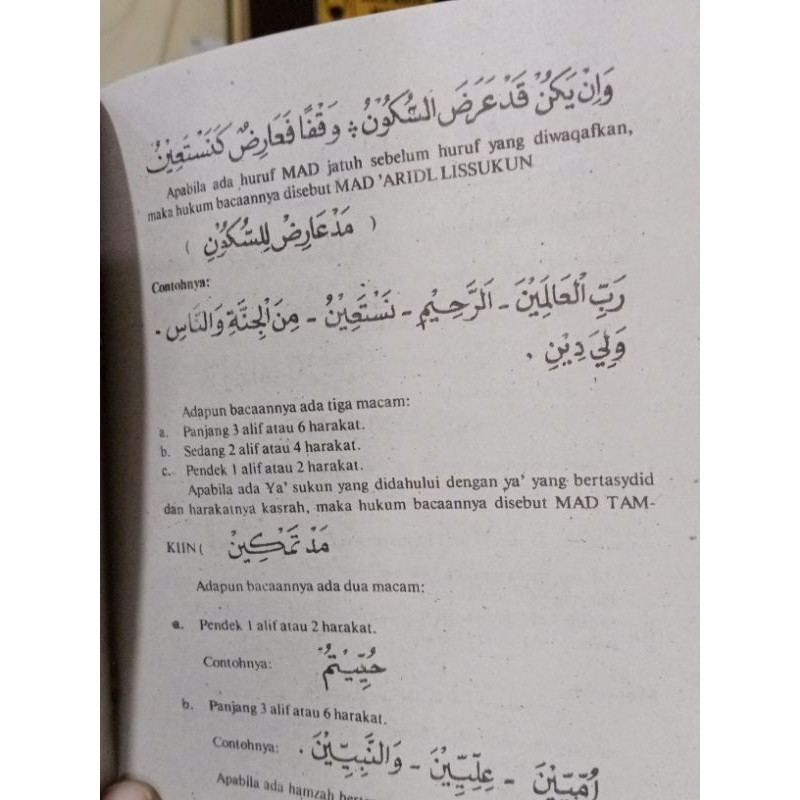 وَاِنْ يَكُنْ قَدْ عَرَضَ السُّكُوْنُ ۞ وَقْفًا فَعَارِضٌ كَنَسْتَعِيْنُ
Apabila ada huruf MAD jatuh sebelum huruf yang diwaqafkan,
maka hukum bacaannya disebut MAD 'ARIDL LISSUKUN
( مَدْ عَارِضْ لِلسُّكُوْنِ )
Contohnya:
رَبِّ الْعَالَمِيْنَ - اَلرَّحِيْمِ - نَسْتَعِيْنُ - مِنَ الْجِنَّةِ وَالنَّاسِ .
وَلِيَ دِيْنِ .
Adapun bacaannya ada tiga macam:
a. Panjang 3 alif atau 6 harakat.
b. Sedang 2 alif atau 4 harakat.
c. Pendek 1 alif atau 2 harakat.
Apabila ada Ya' sukun yang didahului dengan ya' yang bertasydid
dan harakatnya kasrah, maka hukum bacaannya disebut MAD TAM-
KIIN ( مَدْ تَمْكِيْنْ
Adapun bacaannya ada dua macam:
a. Pendek 1 alif atau 2 harakat.
Contohnya: حُيِّيْتُمْ
b. Panjang 3 alif atau 6 harakat.
Contohnya: اُمِّيّيْنَ - عِلِّيِّيْنَ - وَالنَّبِيِّيْنَ .
Apabila ada hamzah